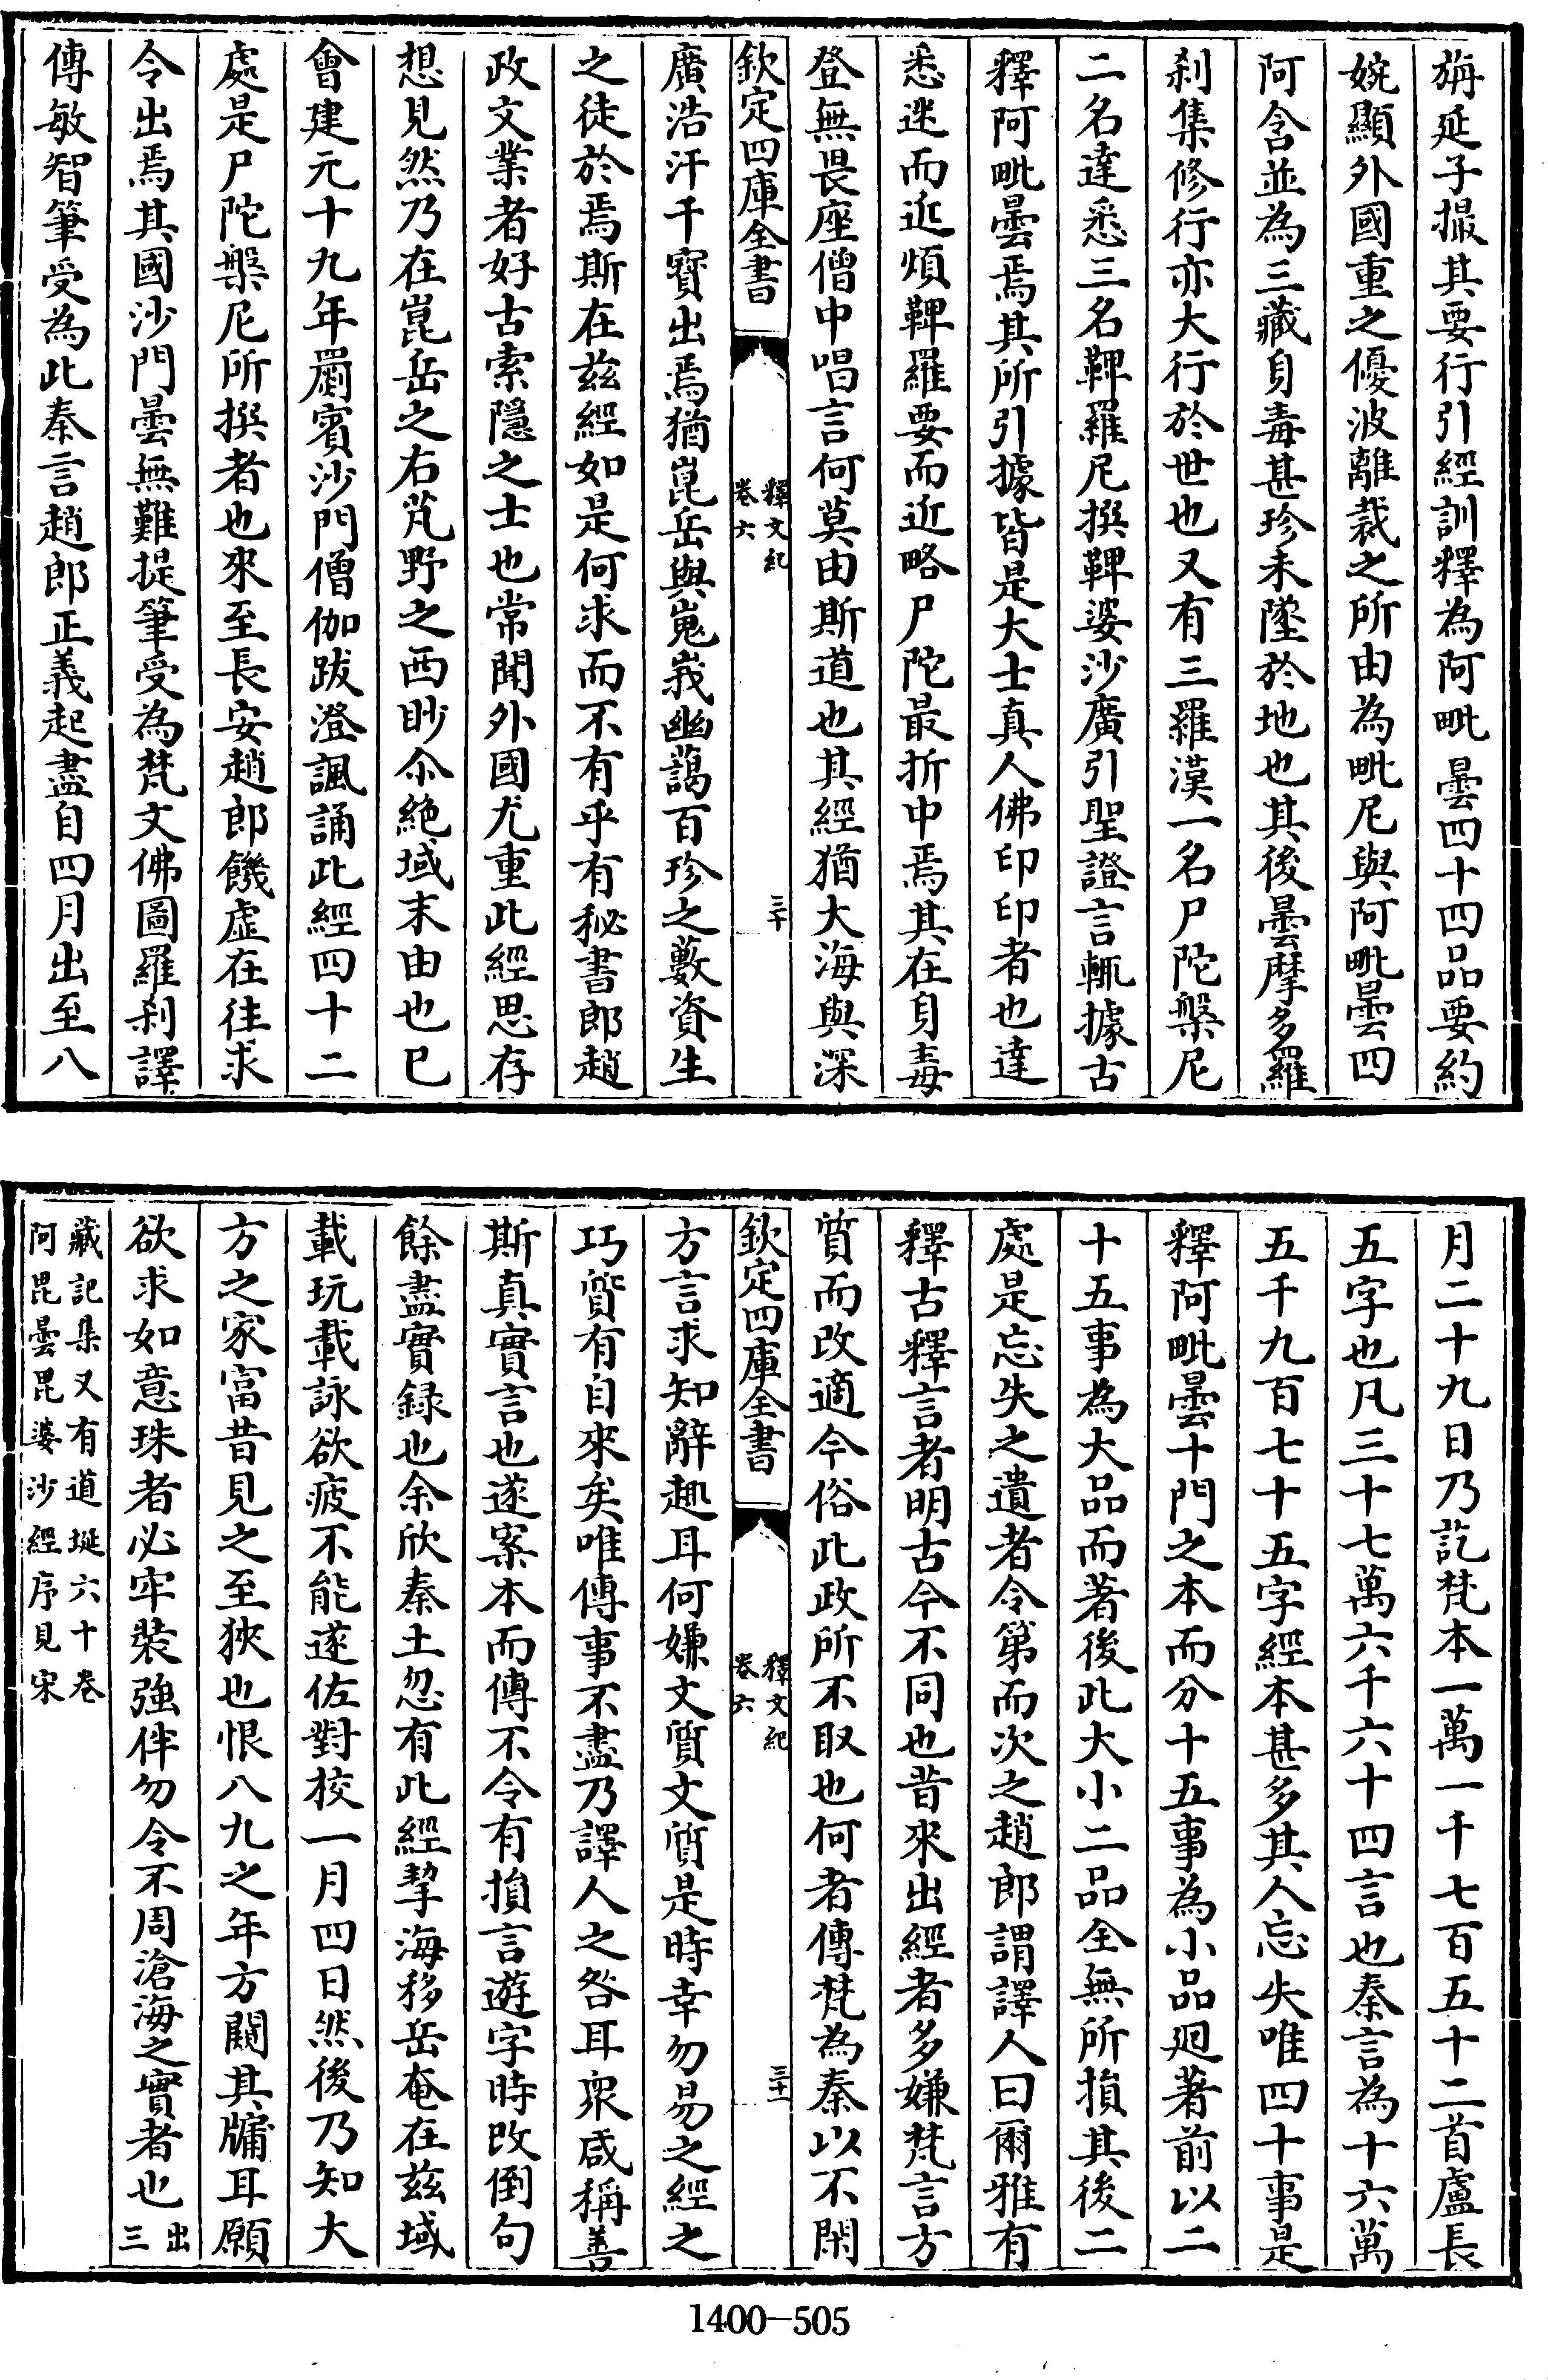 旃延子撮其要行引經訓釋為阿毗曇四十四品要約
婉顯外國重之優波離裁之所由為毗尼與阿毗曇四
阿含並為三藏身毒甚珍未墜於地也其後曇摩多羅
刹集修行亦大行於世也又有三羅漢一名尸陀槃尼
二名達悉三名鞞羅尼撰鞞婆沙廣引聖證言輒據古
釋阿毗曇焉其所引據皆是大士真人佛印印者也達
悉迷而近煩鞞羅要而近略尸陀最折中焉其在身毒
登無畏座僧中唱言何莫由斯道也其經猶大海與深
欽定四庫全書
釋文紀
卷六
三十
廣浩汗千寶出焉猶崑岳與嵬峩幽藹百珍之藪資生
之徒於焉斯在兹經如是何求而不有乎有秘書郎趙
政文業者好古索隱之士也常聞外國尤重此經思存
想見然乃在崑岳之右芃野之西眇尒絶域末由也已
會建元十九年罽賓沙門僧伽跋澄諷誦此經四十二
處是尸陀槃尼所撰者也來至長安趙郎饑虚在往求
令出焉其國沙門曇無難提筆受為梵文佛圖羅刹譯
傳敏智筆受為此秦言趙郎正義起盡自四月出至八
月二十九日乃訖梵本一萬一千七百五十二首盧長
五字也凡三十七萬六千六十四言也秦言為十六萬
五千九百七十五字經本甚多其人忘失唯四十事是
釋阿毗曇十門之本而分十五事為小品迴著前以二
十五事為大品而著後此大小二品全無所損其後二
處是忘失之遺者令第而次之趙郎謂譯人曰爾雅有
釋古釋言者明古今不同也昔來出經者多嫌梵言方
質而改適今俗此政所不取也何者傳梵為秦以不閑
欽定四庫全書
釋文紀
卷六
三十一
方言求知辭趣耳何嫌文質文質是時幸勿易之經之
巧質有自來矣唯傳事不盡乃譯人之咎耳衆咸稱善
斯真實言也遂案本而傳不令有損言遊字時改倒句
餘盡實録也余欣秦土忽有此經挈海移岳奄在兹域
載玩載詠欲疲不能遂佐對校一月四日然後乃知大
方之家富昔見之至狹也恨八九之年方闚其牖耳願
欲求如意珠者必牢裝強伴勿令不周滄海之實者也出
三
藏記集又有道埏六十卷
阿毘曇毘婆沙經序見宋
1400-505